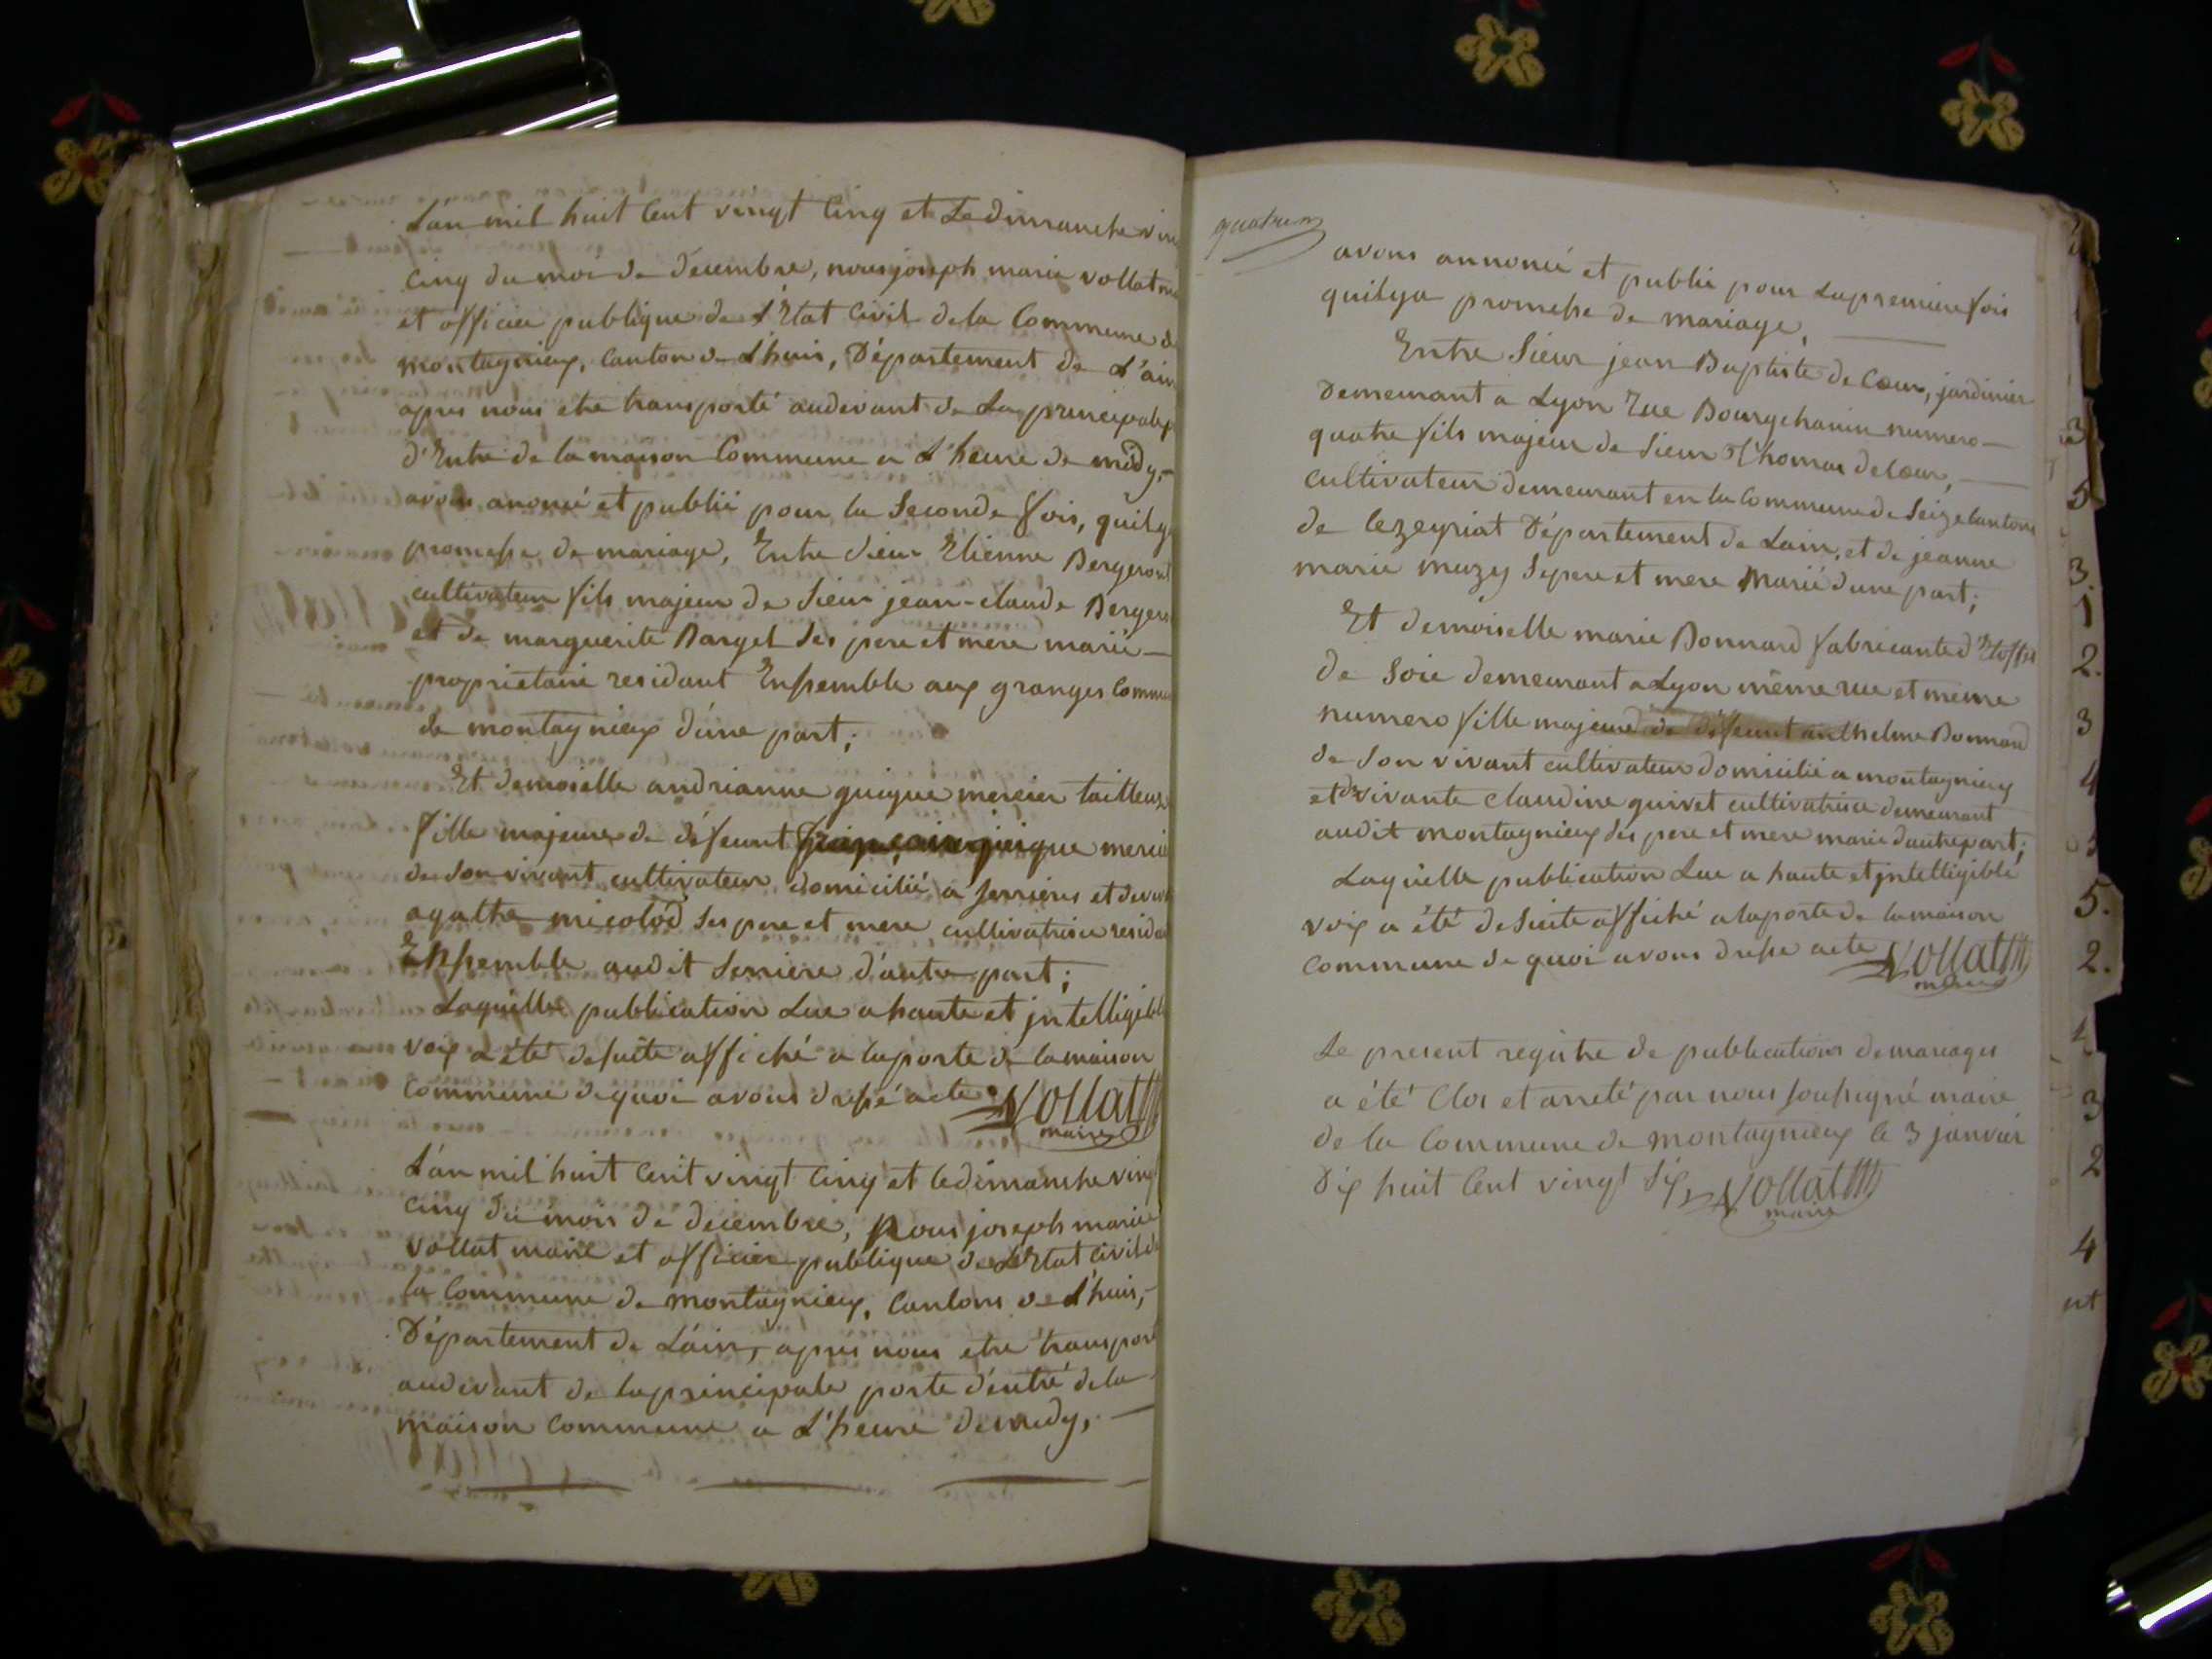 L'an mil huit Cent vingt Cinq et Le dimanche vin
Cinq du moi de decembre, nous joseph marie vollat
et officier publique de l'Etat Civil de la Commune de
montagnieux, Canton de L'huis, Département de L'ain
apres nous etre transporté audevant de La principale
d'Entre de la maison Commune a L'heure de midy,
avons anoncé et publié pour la Seconde fois, quil y
promesse de mariage, Entre Sieur Etienne Bergeron
cultivateur fils majeur de Sieur jean-claude Berger
et de marguerite Barget Ses pere et mere marié
proprietaire residant Ensemble aux granges Commu
de montagnieux d'une part;
Et demoiselle andrianne guigue mercier tailleuse
fille majeure de défeunt françois guigue mercie
de Son vivant cultivateur domicilié a Serrières et de
agathe micolod Ses pere et mere cultivatrice resida
Ensemble audit Seriere d'autre part;
Laquelle publication Lue a haute et jntelligible
voix a été desuite affiché a la porte de la maison
Commune de quoi avons dressé acte Vollat
maire
L'an mil huit Cent vingt Cinq et le dimanche ving
Cinq du mois de decembre, Nous joseph marie
vollat maire et officier publique de L'Etat Civil de
la Commune de montagnieux, Cantons de L'huis,
Département de L'ain, apres nous etre transport
audevant de la principale porte d'entré de la
maison Commune a L'heure de midy,
avons annoncé et publié pour La premiere fois
quil y a promesse de mariage,
Entre Sieur jean Baptiste de Cœur, jardinier
Demeurant a Lyon Rue Bourgchanin numero
quatre fils majeur de Sieur Thomas decœur,
cultivateur demeurant en la Commune de Seize Cantons
de Cezeyriat Département de Lain, et de jeanne
marie muzy Se pere et mere Marié d'une part;
Et demoiselle marie Bonnard fabricante d'Etoffes
de Soie demeurant a Lyon même rue et même
numero fille majeure de défeunt anthelme Bonnard
de Son vivant cultivateur domicilié a montagnieux
et de vivante Claudine guivet cultivatrice demeurant
audit montagnieux Ses pere et mere marié d'autre part;
Laquelle publication Lue a haute et jntelligible
voix a été desuite affiché a la porte de la maison
Commune de quoi avons dressé acte Vollat
maire
Le present registre de publications de mariages
a été Clos et arreté par nous Soussigné maire
de la Commune de montagnieux le 3 janvier
Dix huit Cent vingt Six Vollat
maire
3
5
3.
1
2.
3
4
5
5.
2.
4
3
2
4
nt